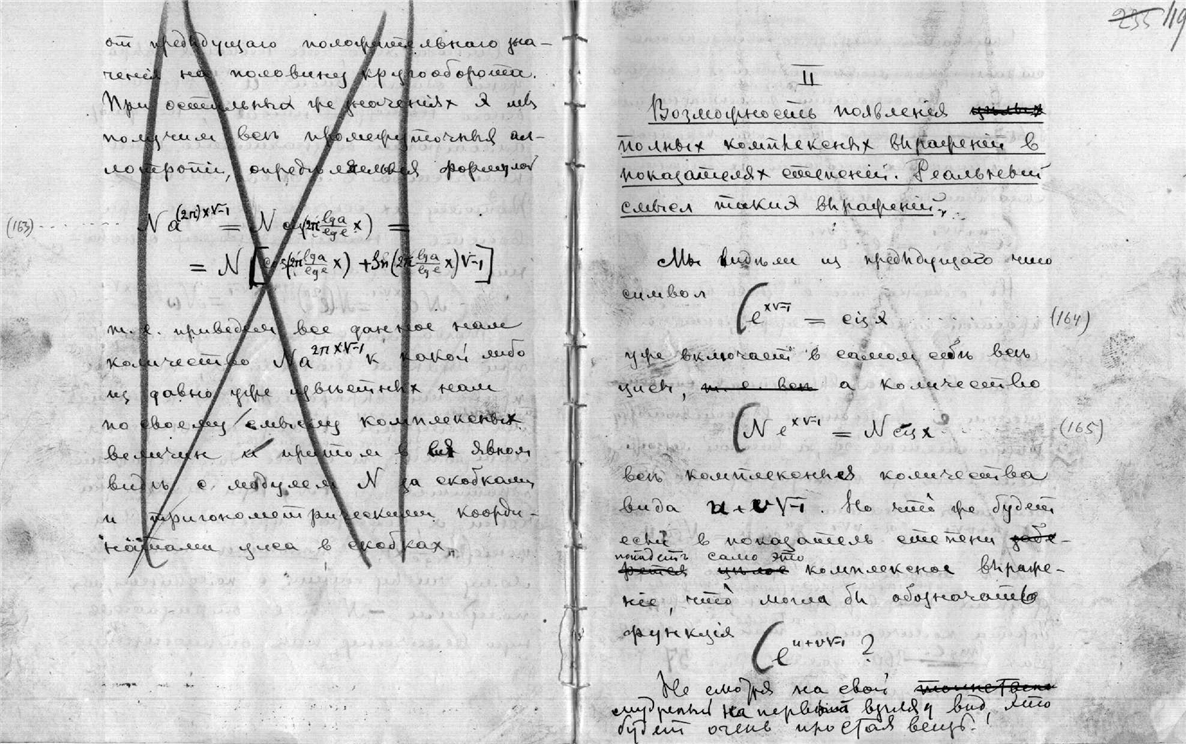 отъ предъидущаго положительнаго зна-
ченія на половину кругооборота.
При остальныхъ же значеніяхъ x мы
получимъ всѣ промежуточныя ал-
лотропіи, опредѣляемыя формулой
(163) N a^{(2π)x√-1} = N ециз(2π lga/lge x) =
= N [cos(2π lga/lge x) + sin(2π lga/lge x)√-1]
т. е. приведемъ все данное намъ
количество Na^{2πx√-1} къ какой либо
изъ давно уже извѣстныхъ намъ
по своему смыслу комплексныхъ
величинъ и притомъ въ явномъ
видѣ съ модулемъ N за скобками
и тригонометрическими коорди-
натами циса въ скобкахъ.
235/19
II
Возможность появленія цѣлыхъ
полныхъ комплексныхъ выраженій въ
показателяхъ степеней. Реальный
смыслъ такихъ выраженій.
Мы видѣли изъ предъидущаго что
символъ
e^{x√-1} = cis x (164)
уже включаетъ въ самомъ себѣ весь
цисъ, т. е. всѣ а количество
N e^{x√-1} = N cis x (165)
всѣ комплексныя количества
вида u + v√-1. Но что же будетъ
если въ показатель степени
попадетъ само это
комплексное выраже-
ніе, что могла бы обозначать
функція
e^{u+v√-1} ?
Не смотря на свой
мудреный на первый взглядъ видъ, это
будетъ очень простая вещь.